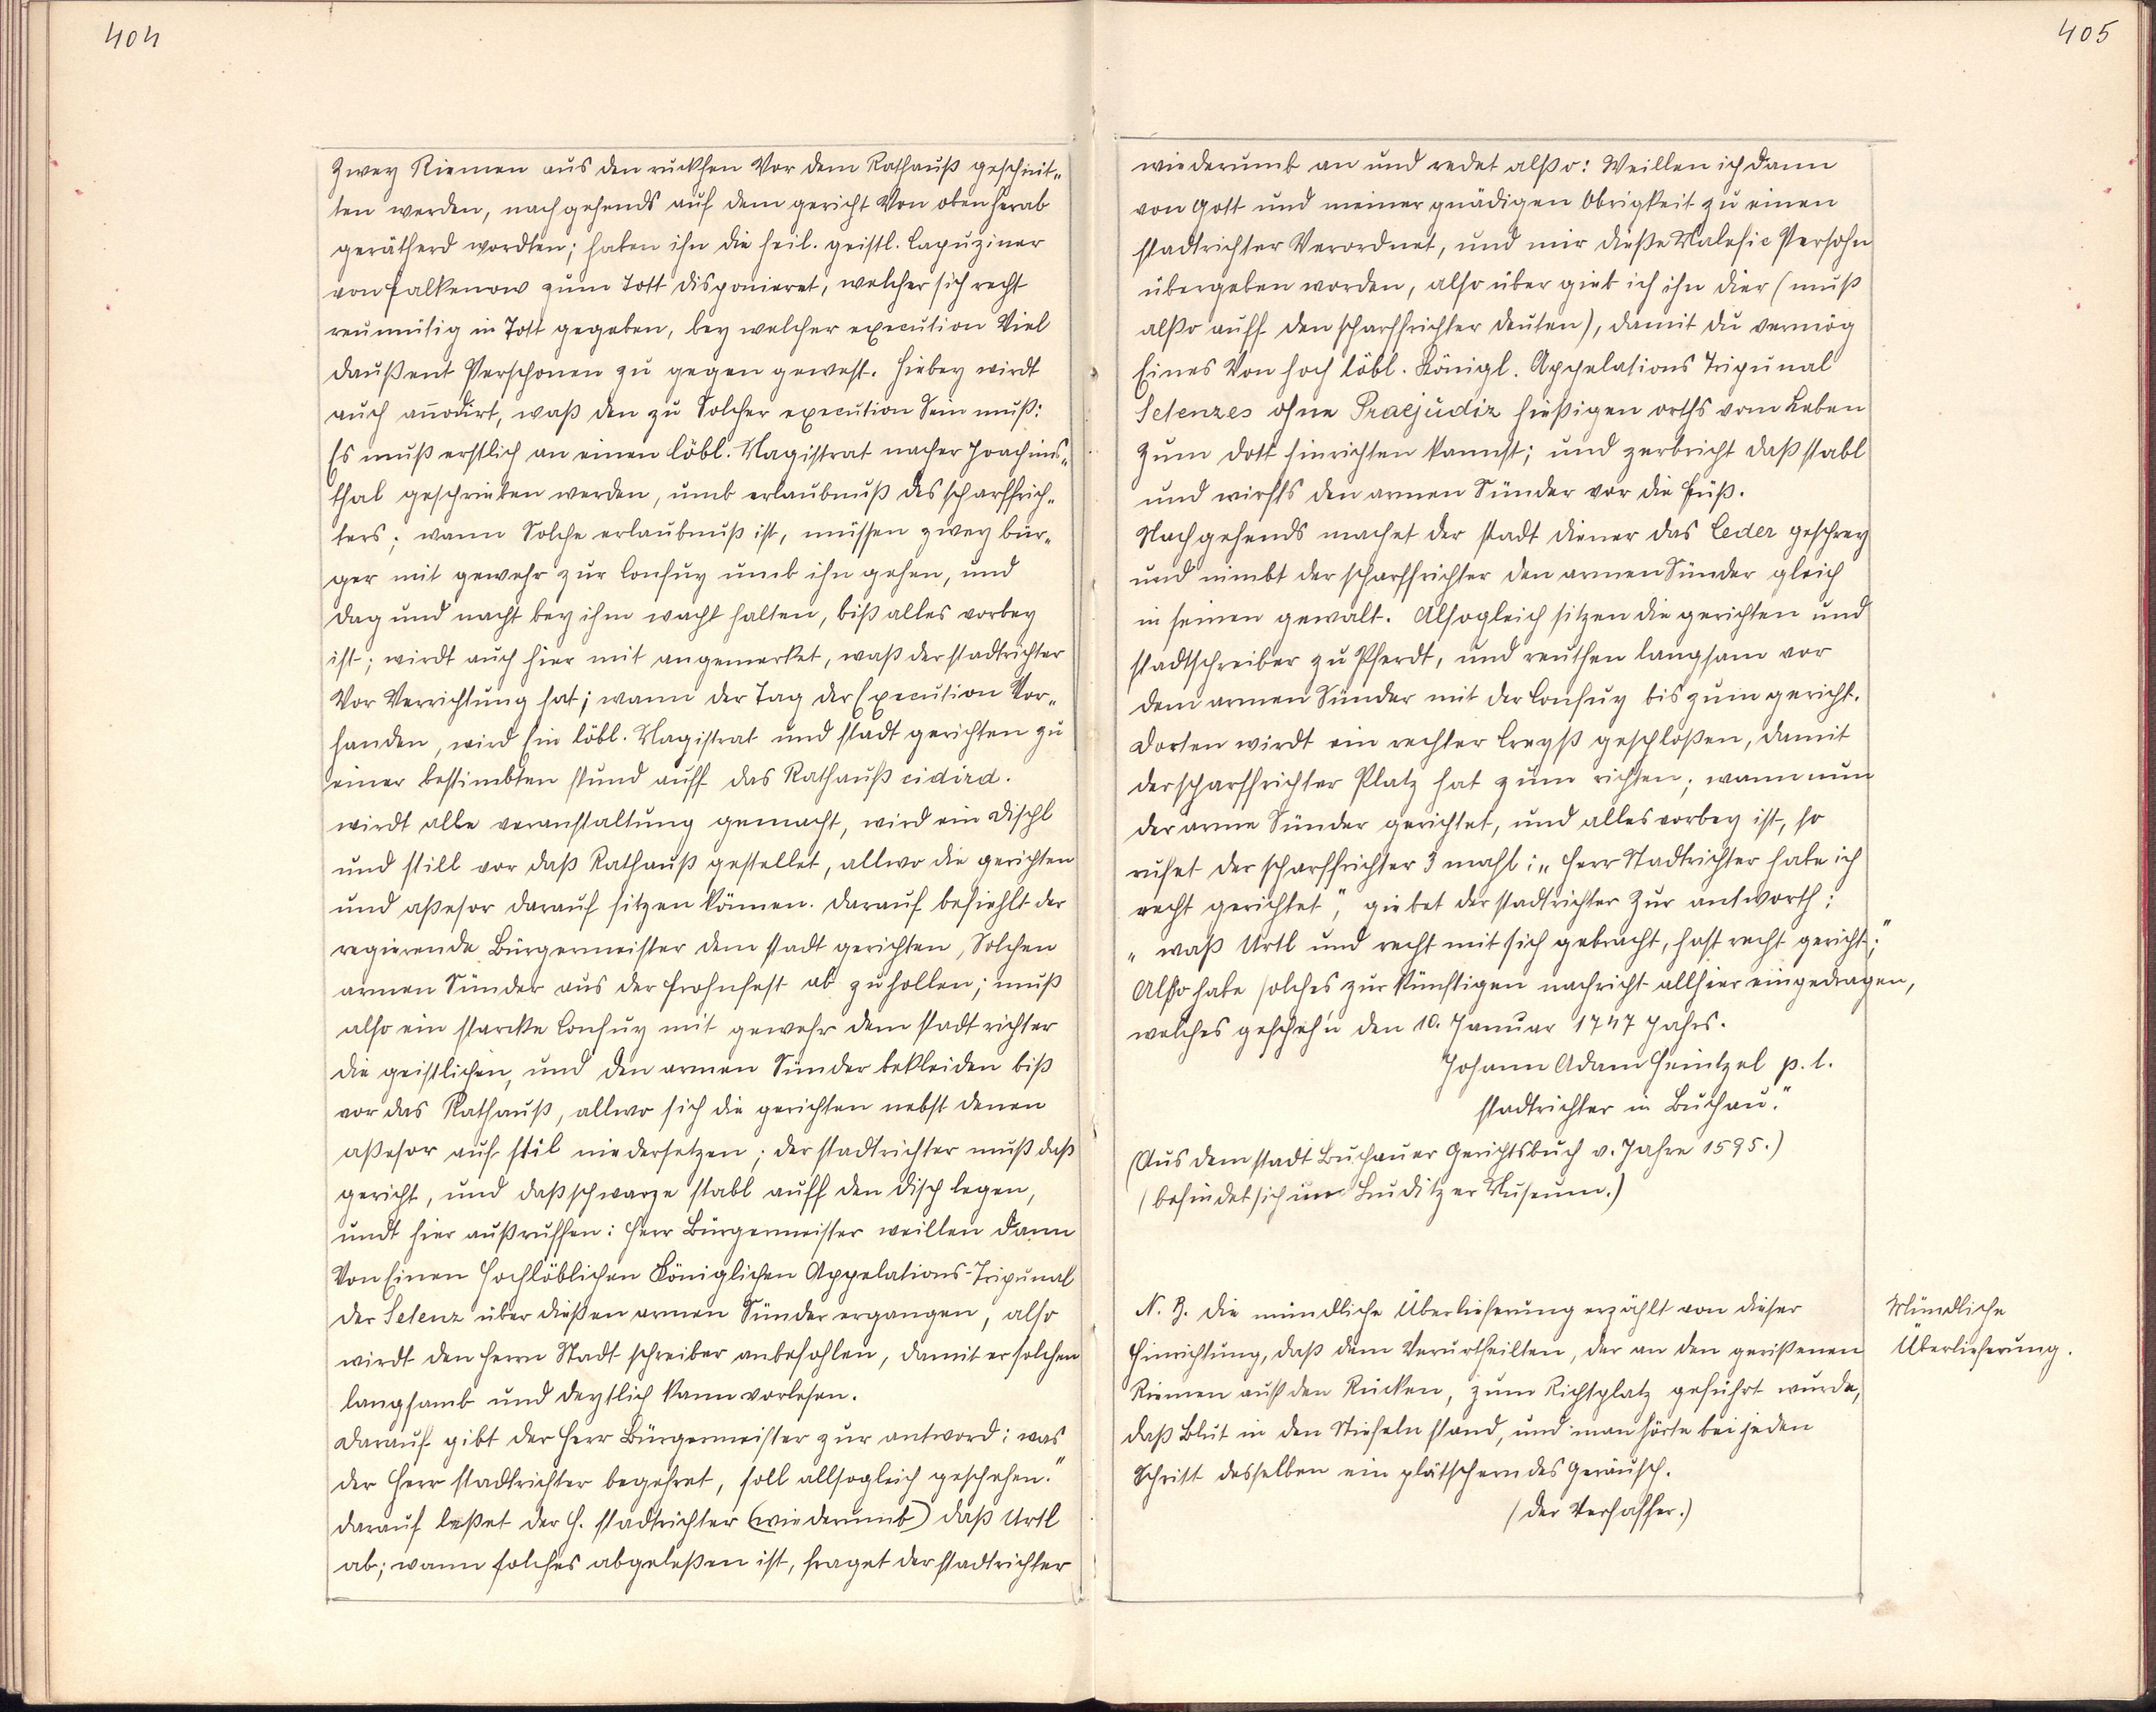 404
Zwey Riemen aus den ruckhen Vor dem Rathauß geschnit„
ten werden, nachgehends auf dem gericht Von oben herab
gerätherd wordten; haben ihn die heil. geistl. Capuziner
von Falkenow zum Tott disponieret, welcher sich recht
reumütig in Tott gegeben, bey welcher execution Viel
daußent Perschonen zu gegen gewest. Hiebey wirdt
auch anodirt, waß den zu Solcher execution Sein muß:
Es muß erstlich an einen löbl. Magistrat nacher Joachims„
thal geschrieben werden, umb erlaubnuß des scharffrich„
ters; wann Solche erlaubnuß ist, müssen zwey bür„
ger mit gewehr zur Confuy umb ihn gehen, und
dag und nacht bey ihm wacht halten, biß alles vorbey
ist; wirdt auch hier mit angemerket, waß der stadtrichter
Vor Verrichtung hat; wann der Tag der Execution Vor„
handen, wird Ein löbl. Magistrat und stadt gerichten zu
einer bestimbten stund auff das Rathauß cidird.
wirdt alle veranstaltung gemacht, wird ein dischl
und still vor daß Rathauß gestellet, allwo die gerichten
und aßesor darauf sitzen können. darauf befiehlt der
regierende Bürgermeister dem stadt gerichten, Solchen
armen Sünder aus der frohnfest ab zu hollen; muß
also ein starcke Confuy mit gewehr dem stadt richter
die geistlichen, und den armen Sünder bekleiden biß
vor das Rathauß, allwo sich die gerichten nebst denen
aßesor auf stil niedersetzen; der stadtrichter muß daß
gericht, und daß schwarze stabl auff den disch legen,
undt hier außruffen: Herr Bürgermeister weillen dann
Von Einen Hochlöblichen Königlichen Appelations-Tripunal
der Setenz über dießen armen Sünder ergangen, also
wirdt den Herrn Stadt schreiber anbefohlen, damit er solchen
langsamb und deytlich kann vorlesen.
darauf gibt der Herr Bürgermeister zur antword: was
der Herr stadtrichter begehret, soll allsogleich geschehen."
darauf leßet der H. stadtrichter (wiederumb) daß Urtl
ab; wann solches abgeleßen ist, fraget der stadtrichter
405
wiederumb an und redet alßo: Weillen ich dann
von Gott und meiner gnädigen Obrigkeit zu einen
stadtrichter Verordnet, und mir dieße Malefic Persohn
übergeben worden, also über gieb ich ihn dier (muß
alßo auff den scharffrichter deuten), damit du vermög
Eines Von hoch löbl. Königl. Appelations Tripunal
Setenzes ohne Praejudiz hießigen orths vom Leben
zum dott hinrichten kannst; und zerbricht daß stabl
und wirfts den armen Sünder vor die Füß.
Nachgehends machet der stadt diener das Ceder geschrey
und nimbt der scharffrichter den armen Sünder gleich
in seinen gewalt. Alsogleich sitzen die gerichten und
stadtschreiber zu Pferdt, und reuthen langsam vor
dem armen Sünder mit der Confuy bis zum gericht.
dorten wirdt ein rechter Creyß geschloßen, damit
der scharffrichter Platz hat zum richten; wann nun
der arme Sünder gerichtet, und alles vorbey ist, so
rufet der scharffrichter 3 mahl: „Herr Stadtrichter habe ich
recht gerichtet", giebet der stadtrichter Zur antworth:
„waß Urtl und recht mit sich gebracht, hast recht gericht;"
Alßo habe solches zur künftigen nachricht allhier eingedragen,
welches gescheh'n den 10. Januar 1747 Jahrs.
Johann Adam Heintzel p. t.
stadtrichter in Buchau."
(Aus dem stadt Buchauer Gerichtsbuch v. Jahre 1595.)
(befindet sich im Luditzer Museum.)
N. B. Die mündliche Überlieferung erzählt von dieser
Hinrichtung, daß dem Verurtheilten, der an den gerißenen
Riemen auß den Rücken, zum Richtplatz geführt wurde,
daß Blut in den Stiefeln stand, und man hörte bei jeden
Schritt desselben ein plätscherndes Geräusch.
(Der Verfasser.)
Mündliche
Überlieferung.